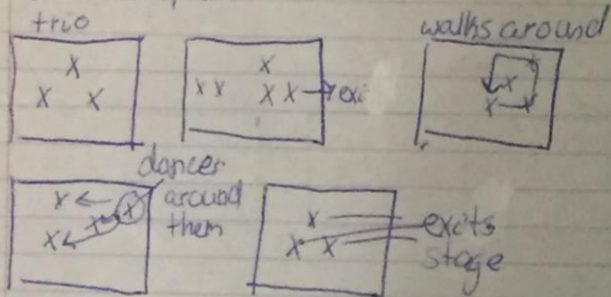 trio
X
X X
X
X X X X exi
walks around
X
X X
dancer
around
them
X X
X
X
X
X X
exits
stage